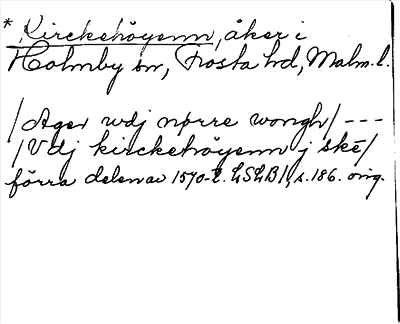 * Kirckehöyenn, åker i
Holmby sn, Frosta hd, Malm. l.
/Ager wdj nørre wongh/ ---
/Vdj kirckehöyenn j skē/
förra delen av 1570-t. LSLB1, s. 186. orig.